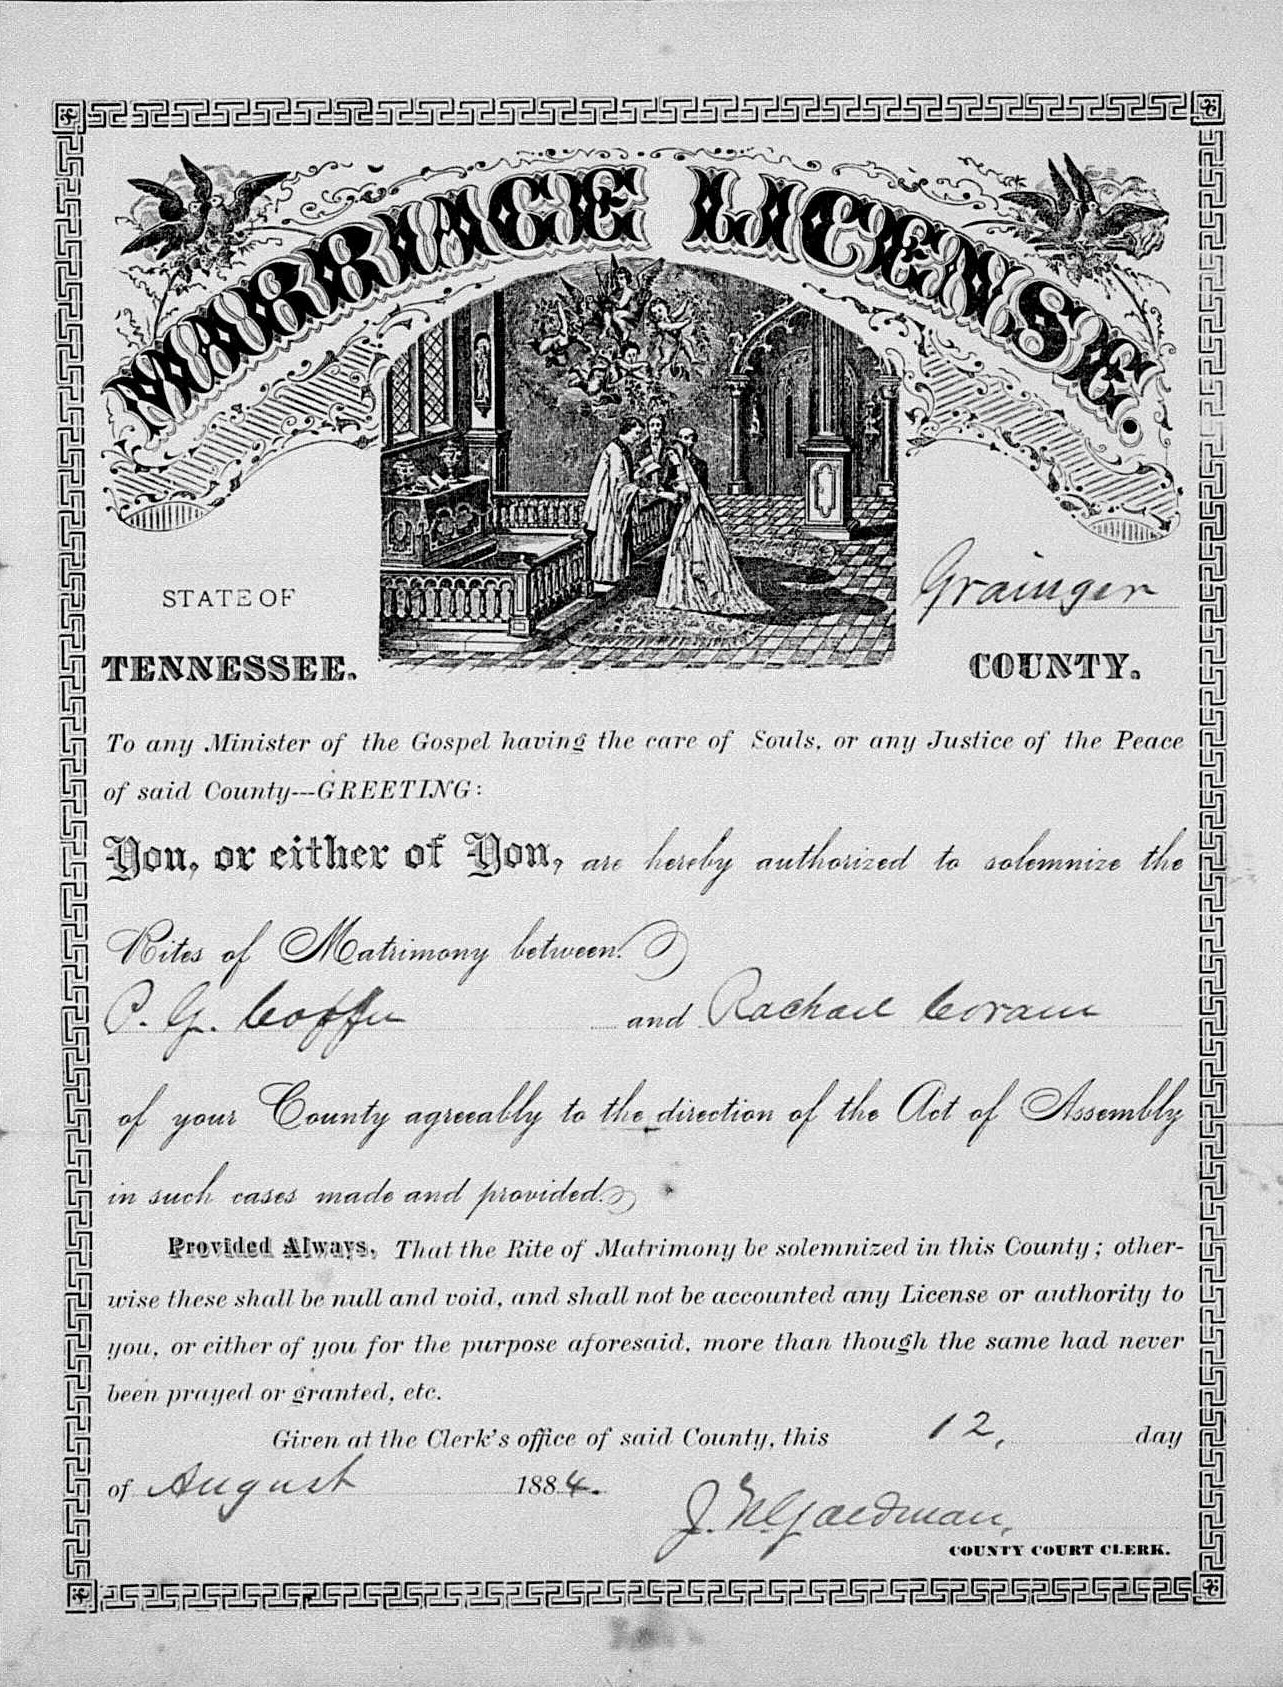 MARRIAGE LICENSE.
STATE OF
TENNESSEE.
Grainger
COUNTY.
To any Minister of the Gospel having the care of Souls, or any Justice of the Peace
of said County---GREETING:
You, or either of You, are hereby authorized to solemnize the
Rites of Matrimony between
P. G. Coffee and Rachael Coram
of your County agreeably to the direction of the Act of Assembly
in such cases made and provided.
Provided Always, That the Rite of Matrimony be solemnized in this County; other-
wise these shall be null and void, and shall not be accounted any License or authority to
you, or either of you for the purpose aforesaid, more than though the same had never
been prayed or granted, etc.
Given at the Clerk's office of said County, this 12, day
of August 1884.
J.
COUNTY COURT CLERK.